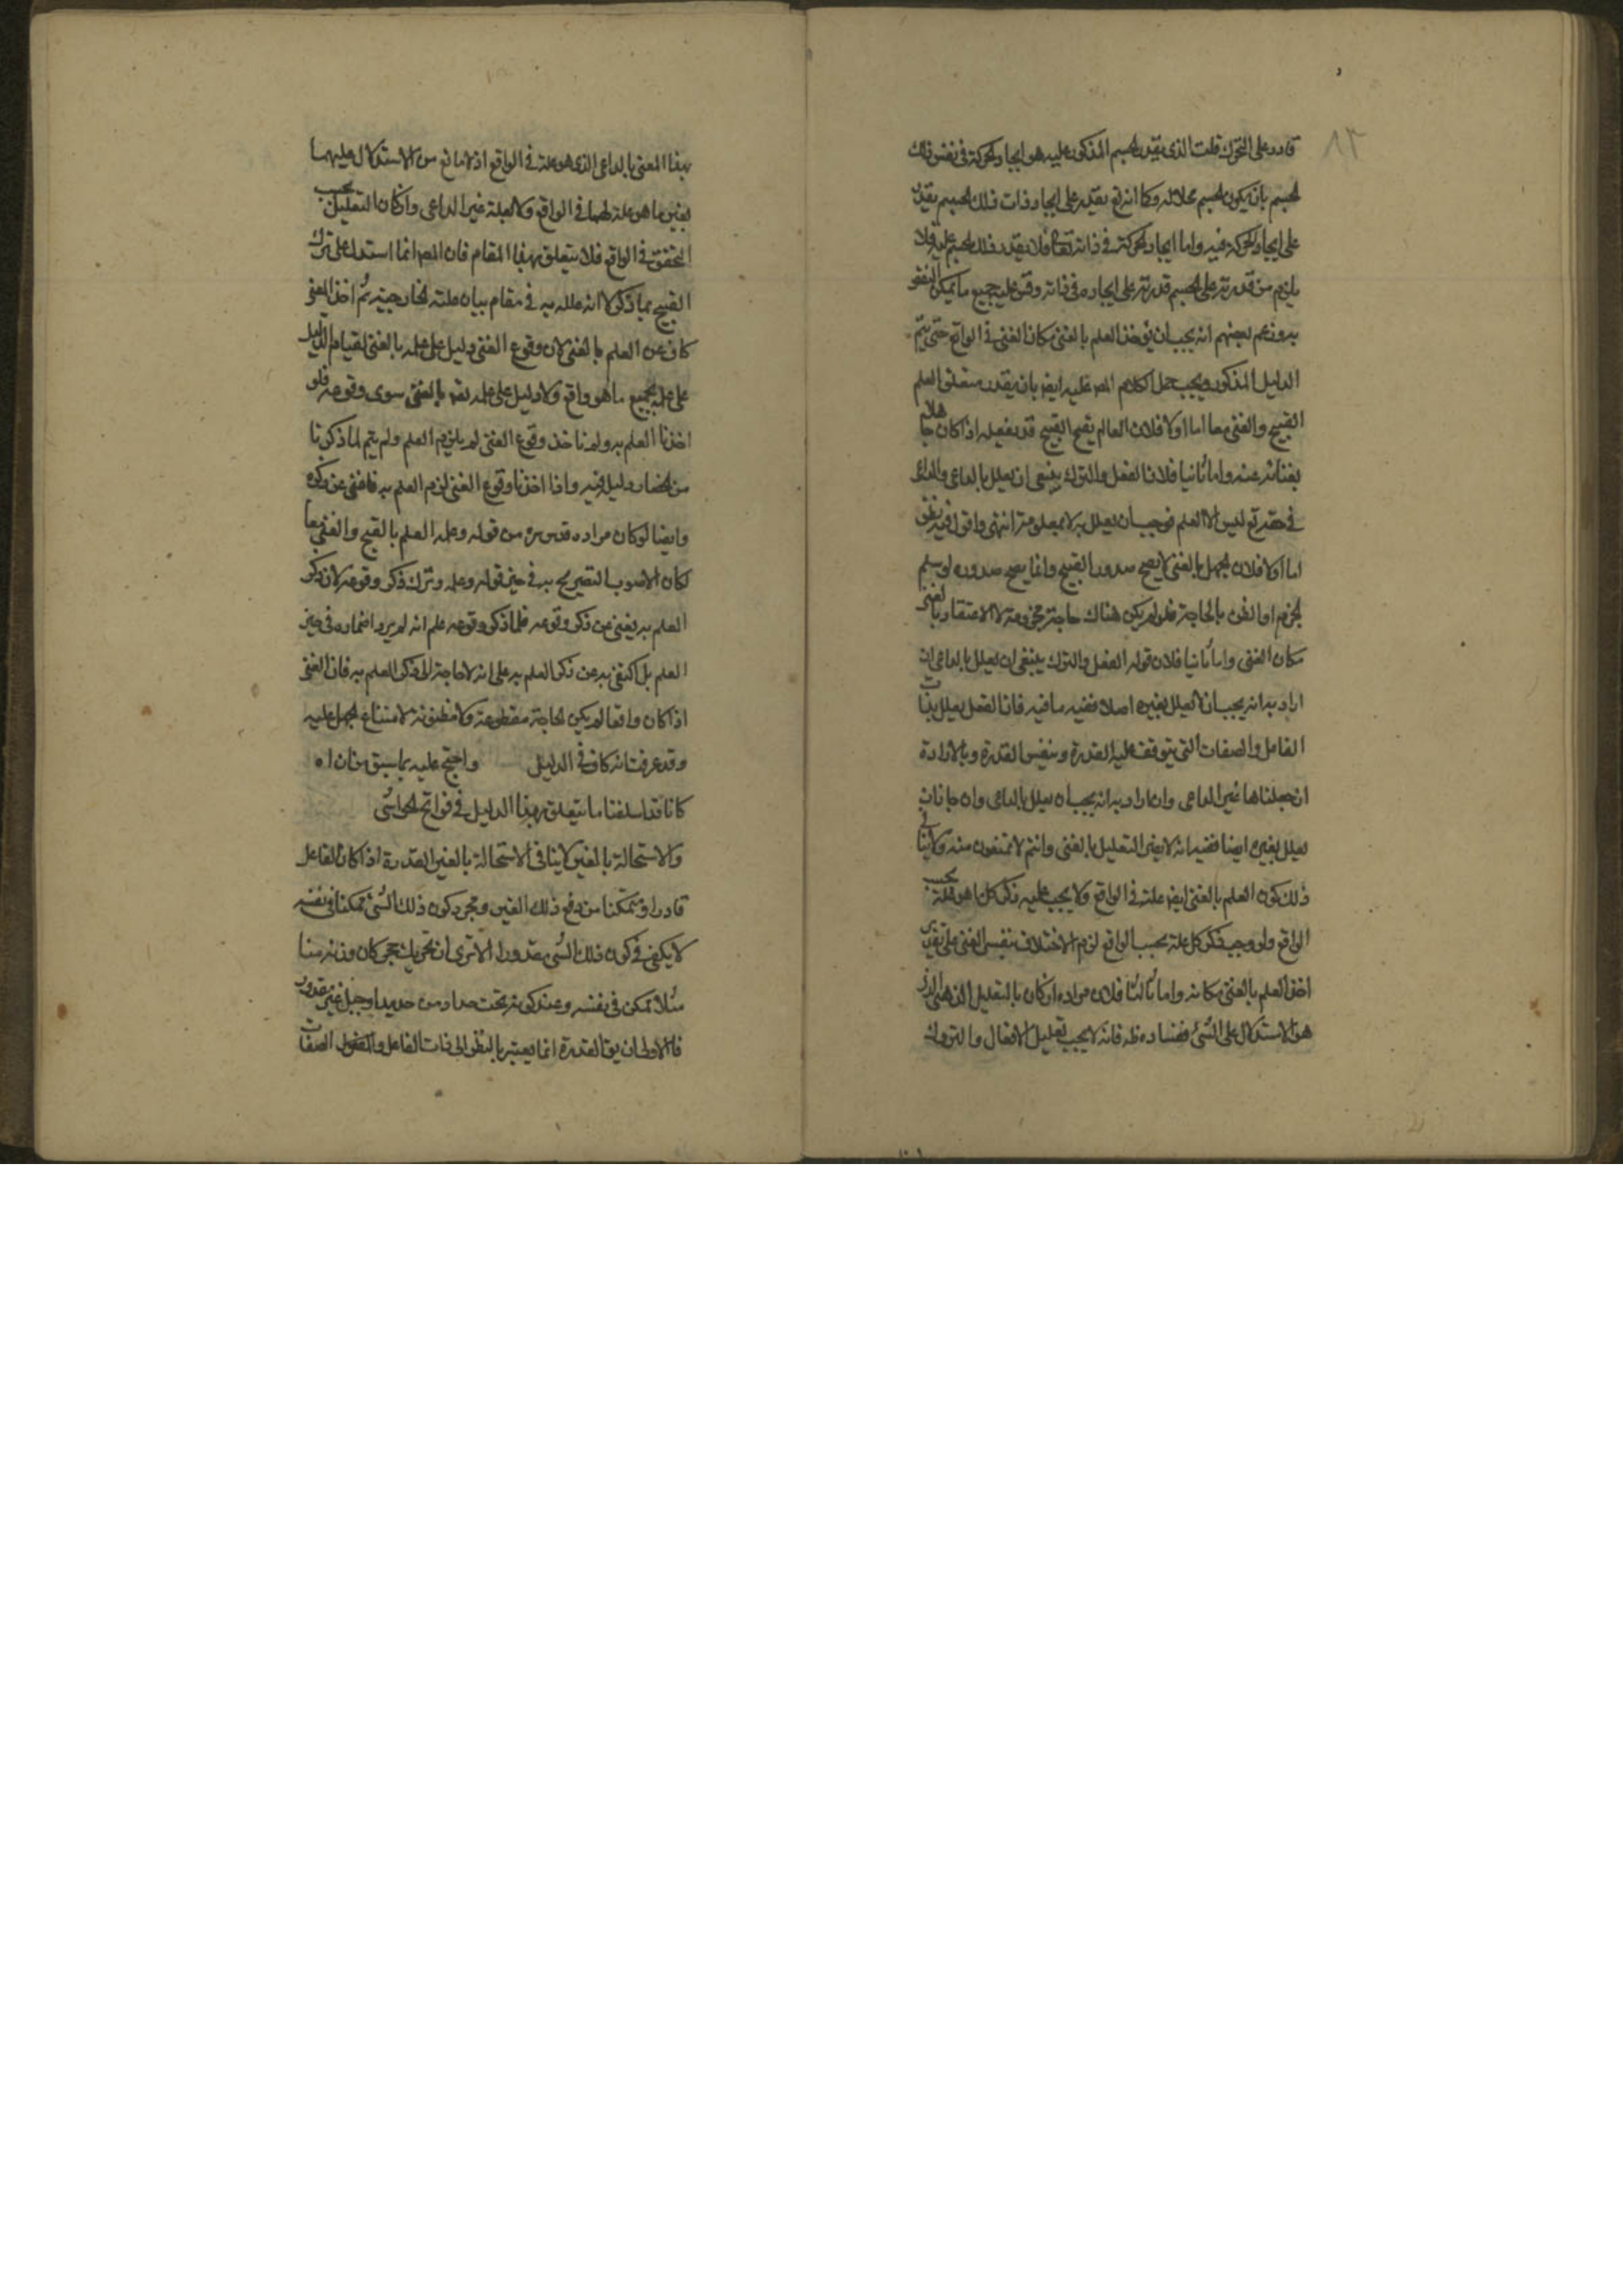 ٨٣
قادر على التحرك قلت الذي يقدر الجسم المذكور عليه هو ايجاد الحركة في نفس ذلك
الجسم بان يكون الجسم محلا له وكما انه تع يقدر على ايجاد ذات ذلك الجسم يقدر
على ايجاد الحركة فيه واما ايجاد الحركة في ذاته تع فلا يقدر ذلك الجسم عليه فلا
يلزم من قدرته على الجسم قدرته على ايجاده في ذاته وقس عليه جميع ما يمكن النقض
به وزعم بعضهم انه يجب ان يؤخذ العلم بالغنى مكان الغنى في الواقع حتى يتم
الدليل المذكور ويجب حمل كلام المص عليه ايض بان يقدر متعلق العلم
القبيح والغنى معا اما اولا فلان العالم بقبح القبيح قد يفعله اذا كان جاهلا
بغنائه عنه واما ثانيا فلان الفعل والترك ينبغي ان يعلل بالداعي والداعي
في حقه تع ليس الا العلم فوجب ان يعلل به لا بمعلومه انتهى واقول فيه نظر
اما اولا فلان الجهل بالغنى لا يصحح صدور القبيح وانما يصحح صدوره لو سلم
الجزم او الظن بالحاجة فلو لم يكن هناك حاجة مجزومة الا الاعتقاد بالغنى
مكان الغنى واما ثانيا فلان قوله الفعل والترك ينبغي ان يعلل بالداعي ان
اراد به انه يجب ان لا يعلل بغيره اصلا ففيه ما فيه فان الفعل يعلل بذات
الفاعل والصفات التي يتوقف عليه القدرة وبنفس القدرة وبالارادة
ان جعلناها غير الداعي وان اراد به انه يجب ان يعلل بالداعي وان جاز ان
يعلل بغيره ايضا ففيه انه لا يضر التعليل بالغنى وانتم لا تمنعون منه ولا ينافي
ذلك كون العلم بالغنى ايض علة في الواقع ولا يجب عليه ذكر كل ما هو علة بحسب
الواقع ولو وجب ذكر كل علة بحسب الواقع لزم الاختلاف بنفس الغنى على تقدير
اخذ العلم بالغنى مكانه واما ثالثا فلان مراده ان كان بالتعليل الذهني الذي
هو الاستدلال على الشئ ففساده ظ فانه لا يجب تعليل الافعال والتروك
بهذا المعنى بالداعي الذي هو علة في الواقع اذ لا مانع من الاستدلال عليهما
بغير ما هو علة لهما في الواقع ولا بعلة غير الداعي وان كان التعليل بحسب
التحقق في الواقع فلا يتعلق بهذا المقام فان المص انما استدل على ترك
القبيح بما ذكر لا انه علله به في مقام بيان علته الخارجية ثم اخذ الغنى
كاف عن العلم بالغنى لان وقوع الغنى دليل على علمه بالغنى لقيام الدليل
على علمه بجميع ما هو واقع ولا دليل على علمه تع بالغنى سوى وقوعه فلو
اخذنا العلم به ولم ناخذ وقوع الغنى لم يلزم العلم ولم يتم لما ذكرنا
من انحصار دليله فيه واذا اخذنا وقوع الغنى لزم العلم به فاغنى عن ذكره
وايضا لو كان مراده قدس سره من قوله وعلمه العلم بالقبح والغنى معا
لكان الاصوب التصريح به في حيز قوله وعلمه وترك ذكر وقوعه لان ذكر
العلم به يغني عن ذكر وقوعه فلما ذكر وقوعه علم انه لم يرد اضماره في حيز
العلم بل اكتفى به عن ذكر العلم به على انه لا حاجة الى ذكر العلم به فان الغنى
اذا كان واقعا لم يكن الحاجة مقطوعة ولا مظنونة لامتناع الجهل عليه
وقد عرفت انه كاف في الدليل واحتج عليه بما سبق من ان اه
كانا قد اسلفنا ما يتعلق بهذا الدليل في فواتح الحواشي
والاستحالة بالغير لا ينافي الاستحالة بالغير القدرة اذا كان الفاعل
قادرا ومتمكنا من دفع ذلك الغير ومجرد كون ذلك الشئ ممكنا في نفسه
لا يكفي في كون ذلك الشئ مقدورا الا ترى ان تحريك حجر كان وزنه منا
مثلا ممكن في نفسه وعند كونه تحت حداد من حديد او جبل غير مقدور
فالاولى ان يق القدرة انما يعتبر بالنظر الى ذات الفاعل والصفات